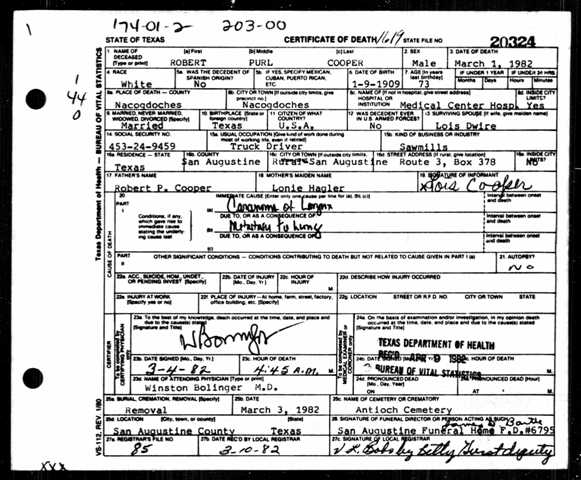 174-01-2 203-00
STATE OF TEXAS CERTIFICATE OF DEATH 1619 STATE FILE NO. 20324
1 NAME OF DECEASED (Type or print) (a) First (b) Middle (c) Last 2. SEX 3. DATE OF DEATH
ROBERT PURL COOPER Male March 1, 1982
4 RACE 5a WAS THE DECEDENT OF SPANISH ORIGIN? 5b. IF YES, SPECIFY MEXICAN, CUBAN, PUERTO RICAN, ETC 6 DATE OF BIRTH 7. AGE (In years last birthday) IF UNDER 1 YEAR IF UNDER 24 HRS
Months Days Hours Minutes
White No 1-9-1909 73
8a PLACE OF DEATH — COUNTY 8b CITY OR TOWN (If outside city limits, give precinct no.) 8c NAME OF (If not in hospital, give street address) HOSPITAL OR INSTITUTION INSIDE CITY LIMITS?
Nacogdoches Nacogdoches Medical Center Hosp. Yes
9 MARRIED, NEVER MARRIED, WIDOWED, DIVORCED (Specify) 10 BIRTHPLACE (State or foreign country) 11 CITIZEN OF WHAT COUNTRY? 12 WAS DECEDENT EVER IN U.S. ARMED FORCES? 13 SURVIVING SPOUSE (If wife, give maiden name)
Married Texas U.S.A. No Lois Dwire
14 SOCIAL SECURITY NO. 15a USUAL OCCUPATION (Give kind of work done during most of working life, even if retired) 15b KIND OF BUSINESS OR INDUSTRY
453-24-9459 Truck Driver Sawmills
16a RESIDENCE — STATE 16b COUNTY 16c CITY OR TOWN (If outside city limits, 16d STREET ADDRESS (If rural, give location) INSIDE CITY LIMITS?
Texas San Augustine San Augustine Route 3, Box 378 No
17 FATHER'S NAME 18 MOTHER'S MAIDEN NAME 19. SIGNATURE OF INFORMANT
Robert P. Cooper Lonie Hagler Lois Cooper
20 PART I IMMEDIATE CAUSE (Enter only one cause per line for (a), (b), (c)) Interval between onset and death
Conditions, if any, which gave rise to immediate cause stating the underlying cause last
(a) Carcinoma of Larynx
DUE TO, OR AS A CONSEQUENCE OF Interval between onset and death
(b) Metastasis to Lung
DUE TO, OR AS A CONSEQUENCE OF Interval between onset and death
(c)
PART II OTHER SIGNIFICANT CONDITIONS — CONDITIONS CONTRIBUTING TO DEATH BUT NOT RELATED TO CAUSE GIVEN IN PART I (a) 21. AUTOPSY?
No
22a ACC, SUICIDE, HOM., UNDET., OR PENDING INVEST (Specify) 22b. DATE OF INJURY (Mo., Day, Yr.) 22c HOUR OF INJURY M. 22d. DESCRIBE HOW INJURY OCCURRED
22e INJURY AT WORK (Specify yes or no) 22f. PLACE OF INJURY — At home, farm, street, factory, office building, etc. (Specify) 22g. LOCATION STREET OR R.F.D NO. CITY OR TOWN STATE
23a To the best of my knowledge, death occurred at the time, date, and place and due to the cause(s) stated (Signature and Title)
24a. On the basis of examination and/or investigation, in my opinion death occurred at the time, date and place and due to the cause(s) stated (Signature and Title)
TEXAS DEPARTMENT OF HEALTH
REC'D APR 9 1982
BUREAU OF VITAL STATISTICS
23b DATE SIGNED (Mo., Day, Yr.) 23c HOUR OF DEATH 24b. DATE SIGNED HOUR OF DEATH
3-4-82 4:45 A.M. M
23d NAME OF ATTENDING PHYSICIAN (Type or print) 24d PRONOUNCED DEAD (Mo., Day, Year) PRONOUNCED DEAD (Hour)
Winston Bolinger M.D. ON AT M
25a BURIAL, CREMATION, REMOVAL (Specify) 25b DATE 25c NAME OF CEMETERY OR CREMATORY
Removal March 3, 1982 Antioch Cemetery
25d LOCATION (City, town, or county) (State) 26 SIGNATURE OF FUNERAL DIRECTOR OR PERSON ACTING AS SUCH
San Augustine County Texas San Augustine Funeral Home F.D.#6795
27a REGISTRAR'S FILE NO 27b DATE REC'D BY LOCAL REGISTRAR 27c SIGNATURE OF LOCAL REGISTRAR
85 3-10-82 deputy
Texas Department of Health — BUREAU OF VITAL STATISTICS
VS-112, REV. 1/80
CAUSE OF DEATH
CERTIFIER
1
44
0
XXX